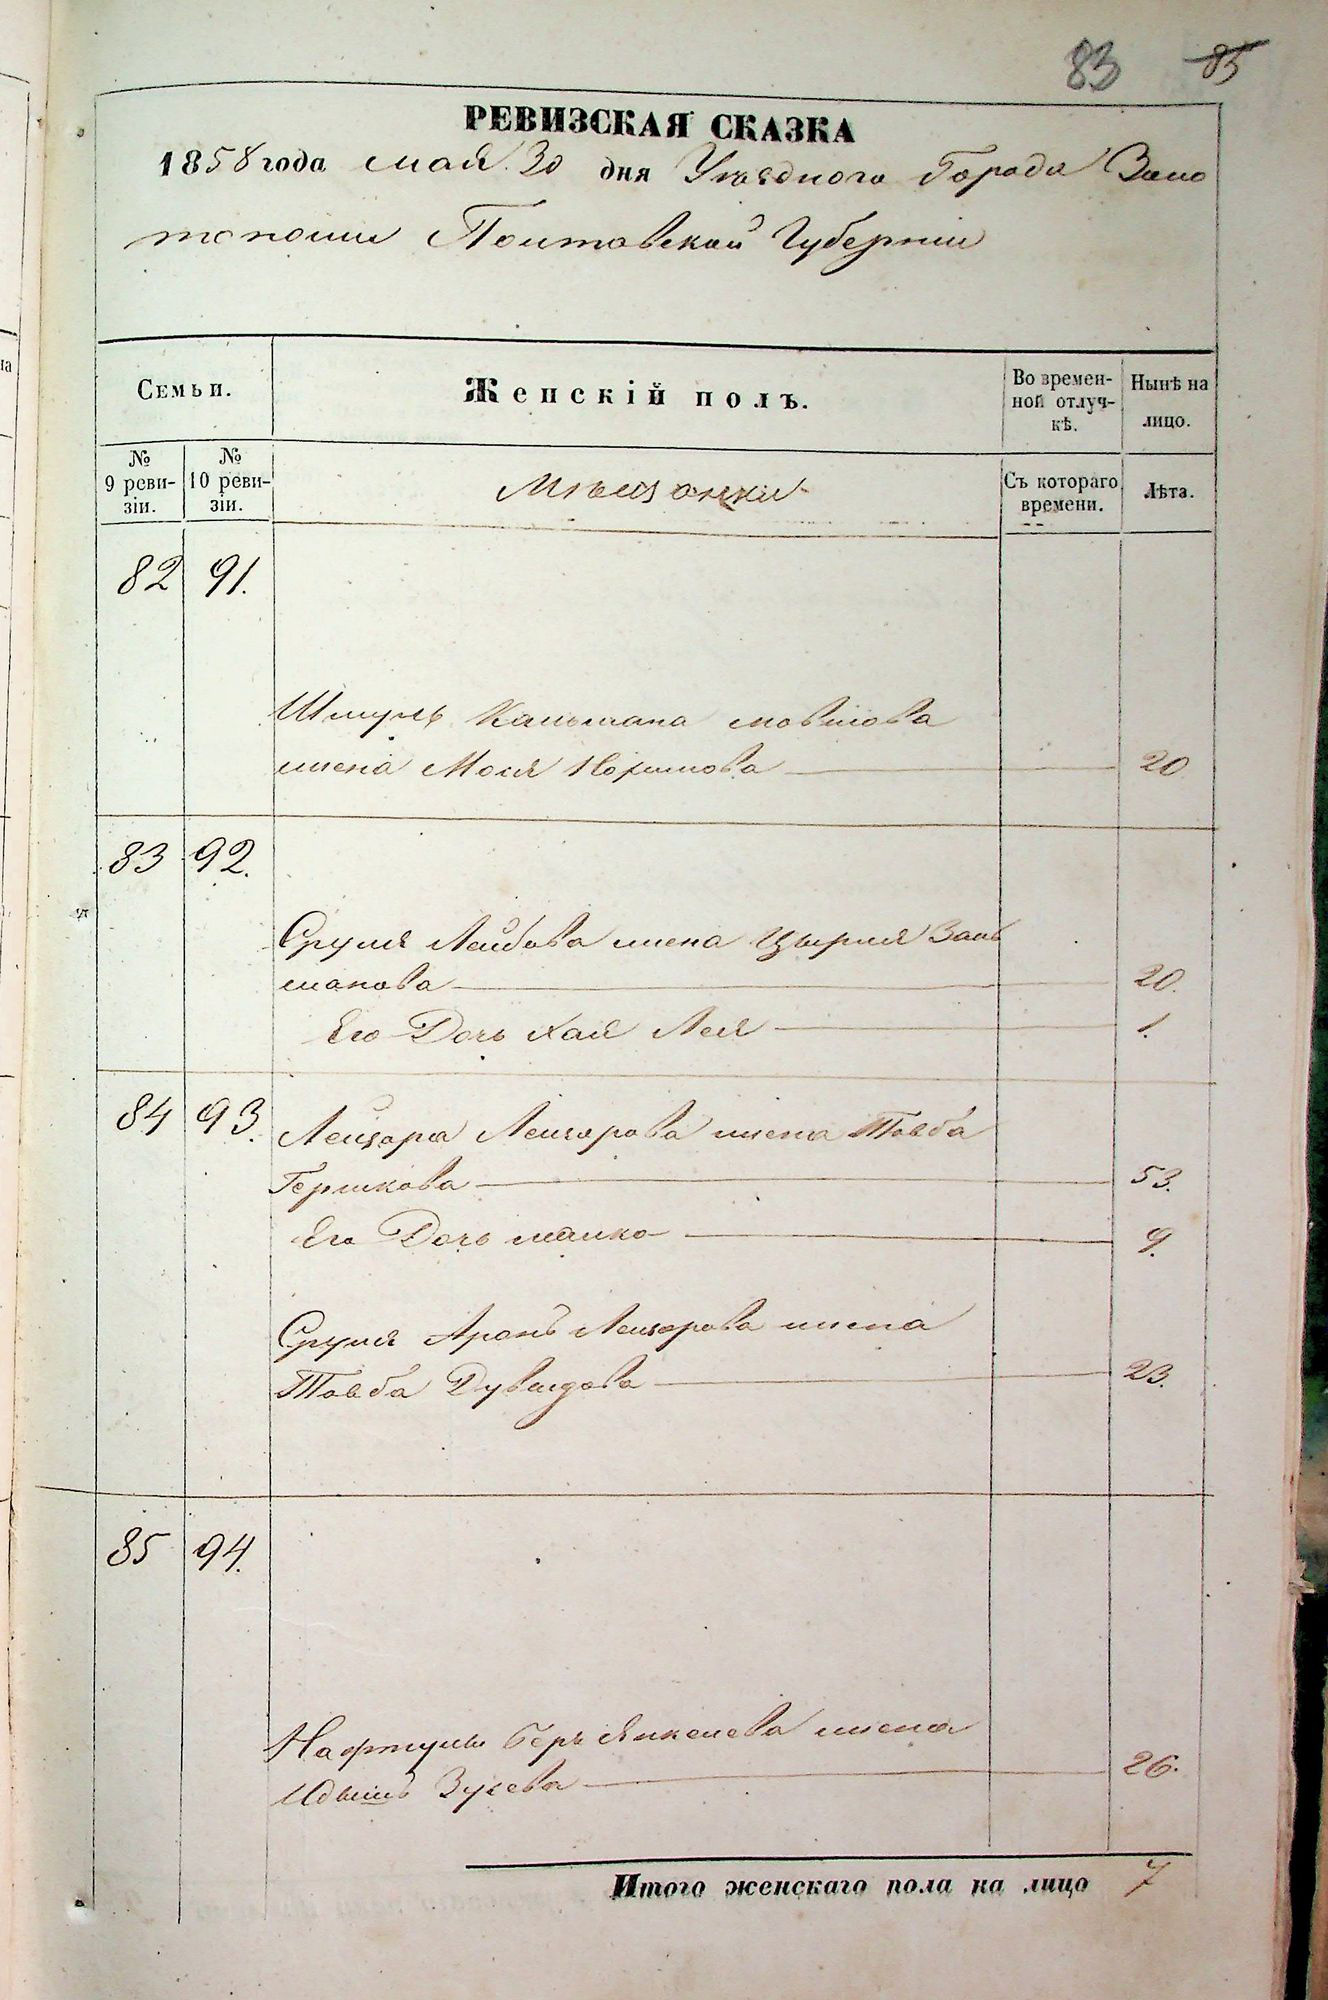 83 85
РЕВИЗСКАЯ СКАЗКА
1858 года мая 30 дня Уѣзднаго Города Золо
тоноши Полтавской Губерніи
Семьи.
Женскій полъ.
Во времен-
ной отлуч-
кѣ.
Нынѣ на
лицо.
№
9 реви-
зіи.
№
10 реви-
зіи.
Мѣщанки
Съ котораго
времени.
Лѣта.
82 91.
Шмуль Кальмана Мовшова
жена Мося 20
83 92.
Сруля Лейбова жена Цырля Заль
манова 20.
Его Дочь Хая Лея 1.
84 93.
Лейзора Лейзорова жена Товба
Гершкова 53.
Его Дочь Малка 9.
Сруля Аронъ Лейзорова жена
Товба Дувидова 23.
85 94.
Нафтулы Беръ Янкелева жена
Зусева 26.
Итого женскаго пола на лицо 7